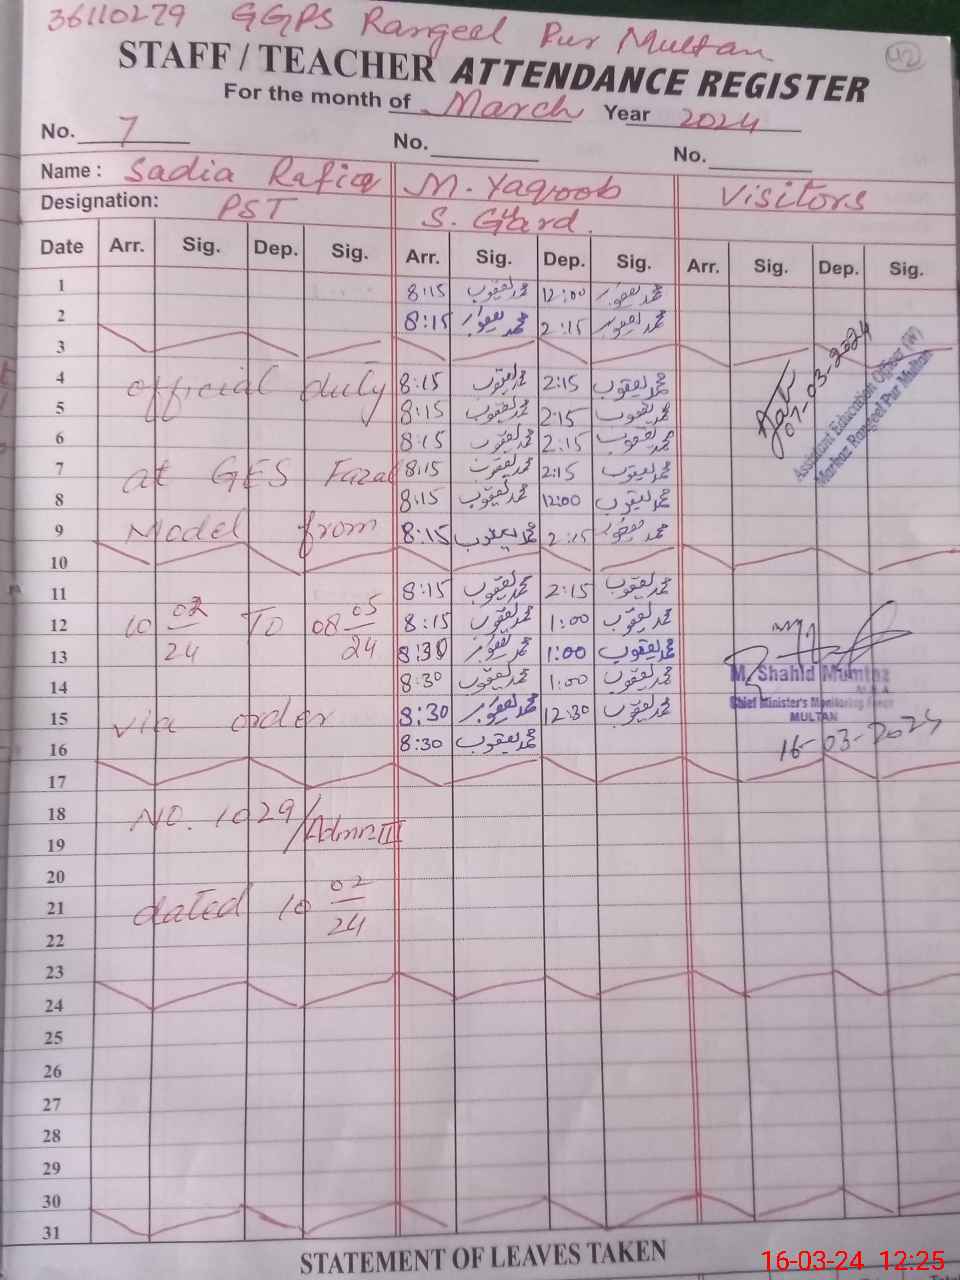 36110279 GGPS Rangeel Pur Multan
42
STAFF / TEACHER ATTENDANCE REGISTER
For the month of March Year 2024
No. 7 No. No.
Name : Sadia Rafiq M. Yaqoob Visitors
Designation: PST S. Guard
Date Arr. Sig. Dep. Sig. Arr. Sig. Dep. Sig. Arr. Sig. Dep. Sig.
1 8:15 محمد یعقوب 12:00 محمد یعقوب
2 8:15 محمد یعقوب 2:15 محمد یعقوب
3
4 official duty 8:15 محمد یعقوب 2:15 محمد یعقوب
5 8:15 محمد یعقوب 2:15 محمد یعقوب
6 8:15 محمد یعقوب 2:15 محمد یعقوب
7 at GES Fazal 8:15 محمد یعقوب 2:15 محمد یعقوب
8 8:15 محمد یعقوب 12:00 محمد یعقوب
9 Model from 8:15 محمد یعقوب 2:15 محمد یعقوب
10
11 8:15 محمد یعقوب 2:15 محمد یعقوب
12 10 02/24 To 08 05/24 8:15 محمد یعقوب 1:00 محمد یعقوب
13 8:30 محمد یعقوب 1:00 محمد یعقوب
14 8:30 محمد یعقوب 1:00 محمد یعقوب
15 via order 8:30 محمد یعقوب 12:30 محمد یعقوب
16 8:30 محمد یعقوب
17
18 NO. 1029/Admn.III
19
20
21 dated 10 02/24
22
23
24
25
26
27
28
29
30
31
07-03-2024
Assistant Education Officer (W)
Markaz Rangeel Pur Multan
M. Shahid Mumtaz
Chief Minister's Monitoring Force
MULTAN
16-03-2024
STATEMENT OF LEAVES TAKEN
16-03-24 12:25